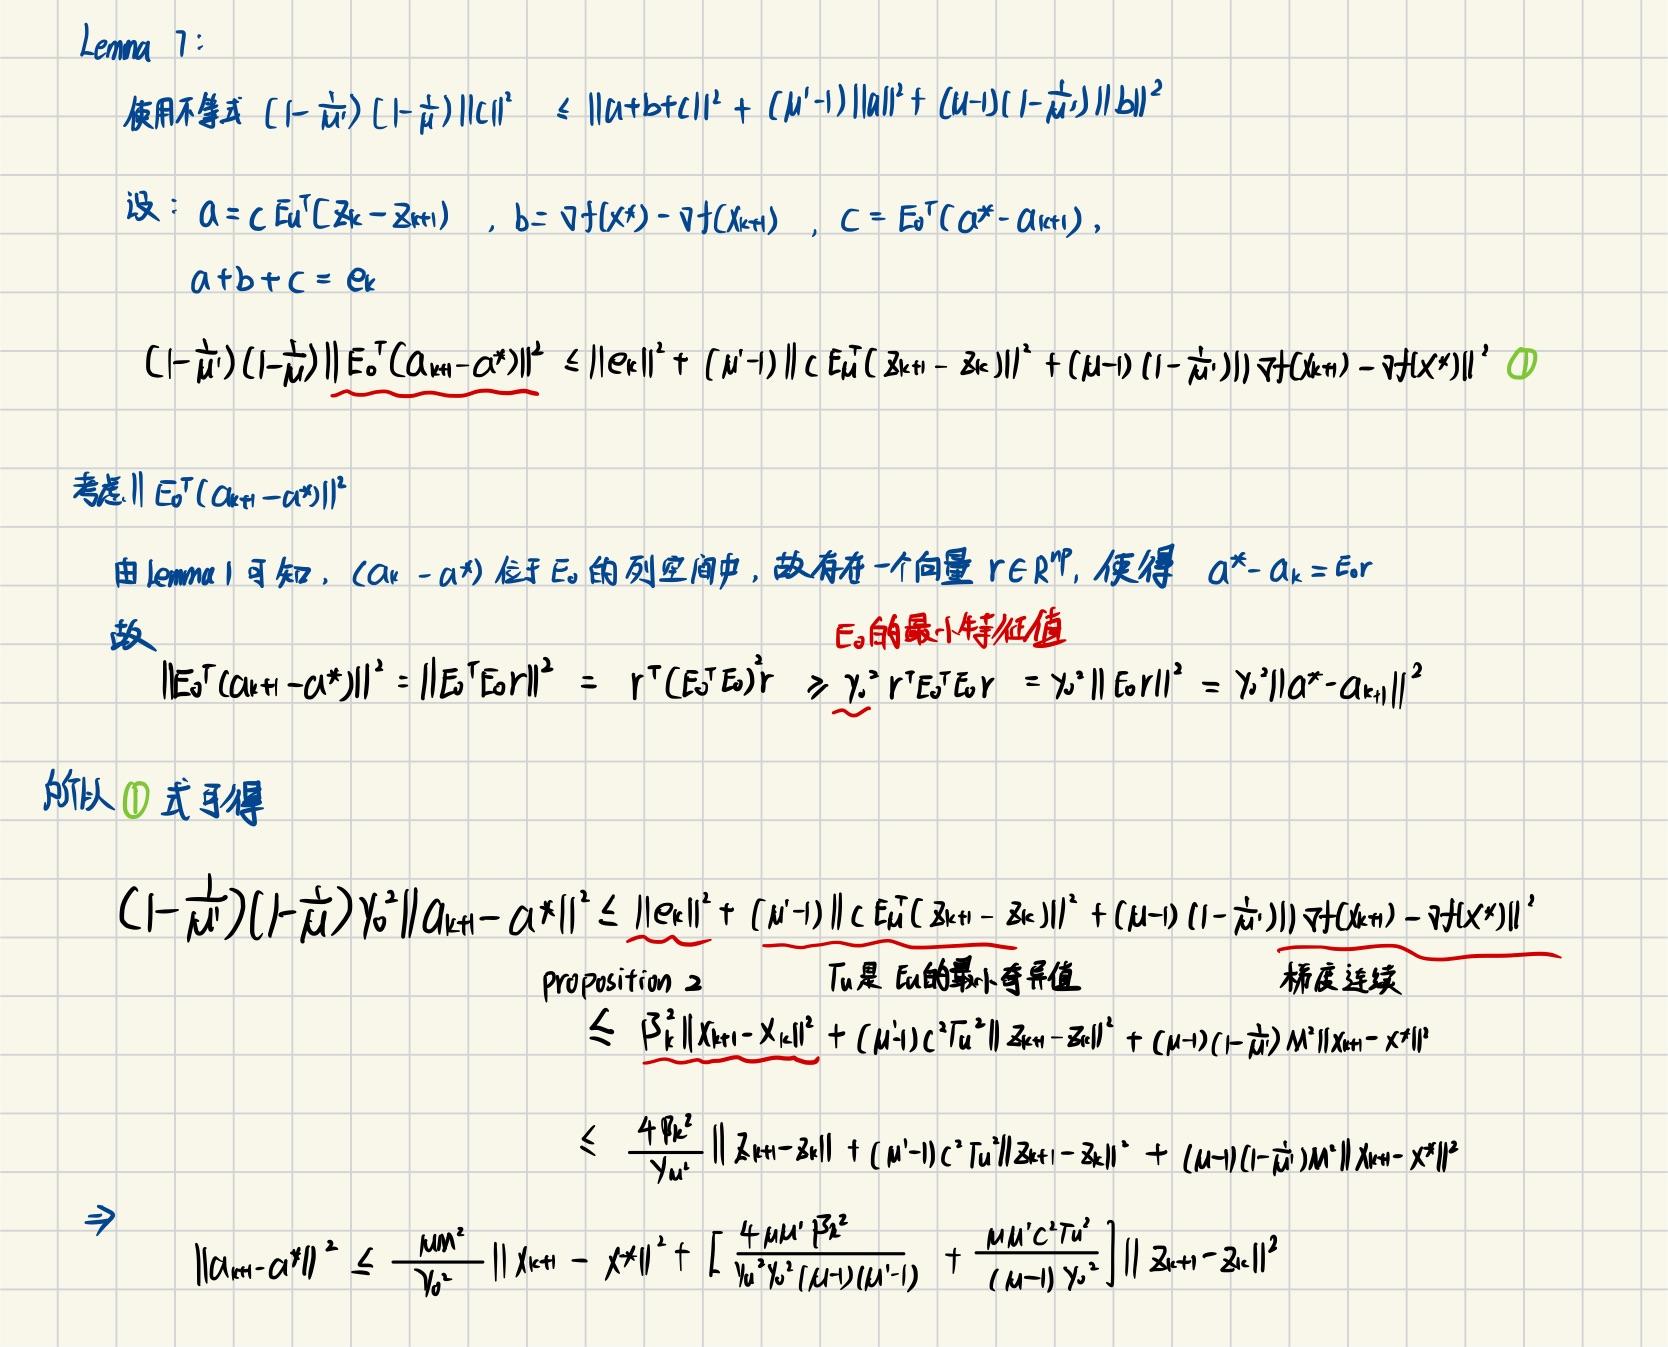 Lemma 7:
使用不等式 (1-\frac{1}{μ'})(1-\frac{1}{μ})||c||² ≤ ||a+b+c||² + (μ'-1)||a||² + (μ-1)(1-\frac{1}{μ'})||b||²
设: a = c E_u^T(z_k - z_{k+1}) , b = ∇f(x*) - ∇f(x_{k+1}) , c = E_0^T(a* - a_{k+1}),
a+b+c = e_k
(1-\frac{1}{μ'})(1-\frac{1}{μ})||E_0^T(a_{k+1} - a*)||² ≤ ||e_k||² + (μ'-1)||c E_μ^T(z_{k+1} - z_k)||² + (μ-1)(1-\frac{1}{μ'})||∇f(x_{k+1}) - ∇f(x*)||² ①
考虑 ||E_0^T(a_{k+1} - a*)||²
由 lemma 1 可知, (a_k - a*) 位于 E_0 的列空间中, 故存在一个向量 r∈R^{np}, 使得 a* - a_k = E_0 r
故
E_0的最小特征值
||E_0^T(a_{k+1} - a*)||² = ||E_0^T E_0 r||² = r^T(E_0^T E_0)² r ≥ γ_0² r^T E_0^T E_0 r = γ_0² ||E_0 r||² = γ_0² ||a* - a_{k+1}||²
所以 ① 式可得
(1-\frac{1}{μ'})(1-\frac{1}{μ}) γ_0² ||a_{k+1} - a*||² ≤ ||e_k||² + (μ'-1)||c E_μ^T(z_{k+1} - z_k)||² + (μ-1)(1-\frac{1}{μ'})||∇f(x_{k+1}) - ∇f(x*)||²
proposition 2 Γ_u是 E_u的最小奇异值 梯度连续
≤ β_k² ||x_{k+1} - x_k||² + (μ'-1)c²Γ_u² ||z_{k+1} - z_k||² + (μ-1)(1-\frac{1}{μ'}) M² ||x_{k+1} - x*||²
≤ \frac{4β_k²}{γ_u²} ||z_{k+1} - z_k|| + (μ'-1)c²Γ_u² ||z_{k+1} - z_k||² + (μ-1)(1-\frac{1}{μ'})M² ||x_{k+1} - x*||²
⇒
||a_{k+1} - a*||² ≤ \frac{μM²}{γ_0²} ||x_{k+1} - x*||² + [\frac{4μμ'β_k²}{γ_u²γ_0²(μ-1)(μ'-1)} + \frac{μμ'c²Γ_u²}{(μ-1)γ_0²}] ||z_{k+1} - z_k||²